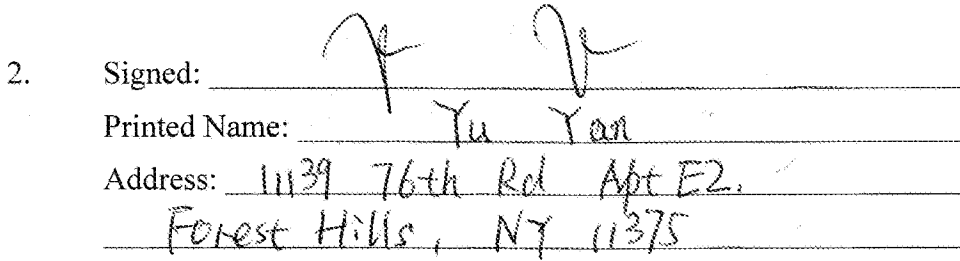 2. Signed:
Printed Name: Yu Yan
Address: 11139 76th Rd Apt E2.
Forest Hills, NY 11375